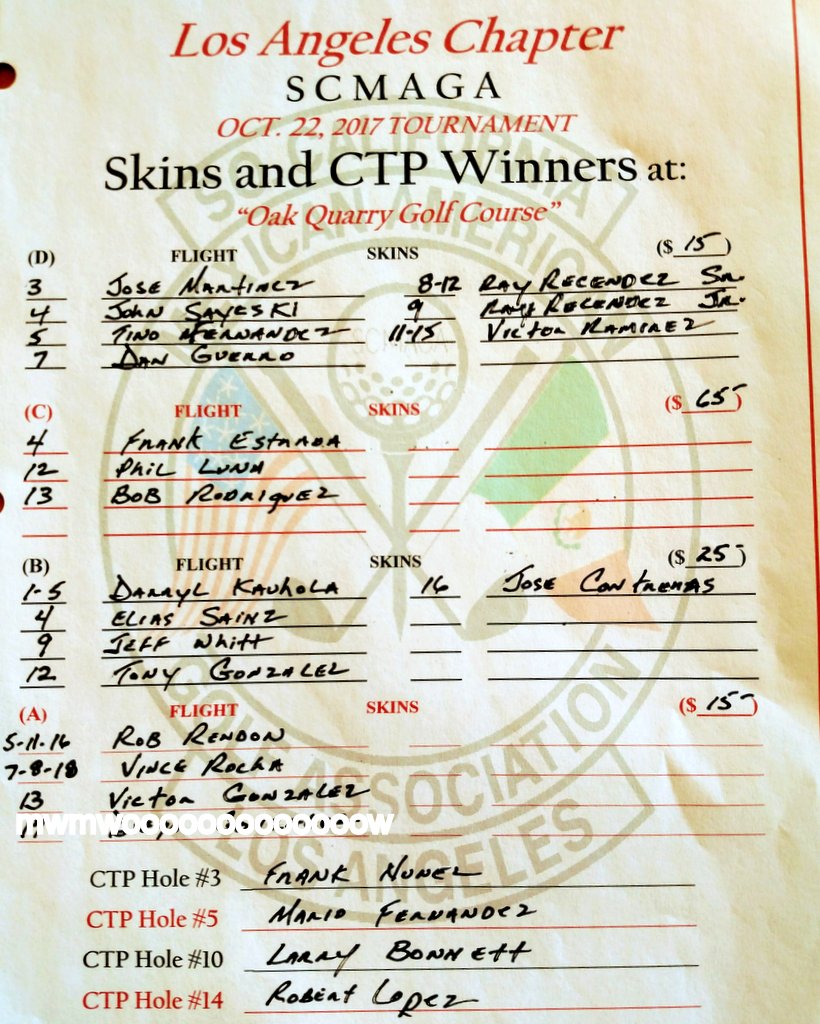 Los Angeles Chapter
SCMAGA
OCT. 22, 2017 TOURNAMENT
Skins and CTP Winners at:
"Oak Quarry Golf Course"
(D) FLIGHT SKINS ($ 15 )
3 JOSE MARTINEZ 8-12 RAY RECENDEZ SR.
4 JOHN SAYESKI 9 RAY RECENDEZ JR.
5 TINO HERNANDEZ 11-15 VICTOR RAMIREZ
7 DAN GUERRO
(C) FLIGHT SKINS ($ 65 )
4 FRANK ESTRADA
12 PHIL LUNA
13 BOB RODRIQUEZ
(B) FLIGHT SKINS ($ 25 )
1-5 DARRYL KAUHOLA 16 JOSE CONTRERAS
4 ELIAS SAINZ
9 JEFF WHITT
12 TONY GONZALEZ
(A) FLIGHT SKINS ($ 15 )
5-11-16 ROB RENDON
7-8-18 VINCE ROCHA
13 VICTOR GONZALEZ
mwmwooooooooooooooow
CTP Hole #3 FRANK NUNEZ
CTP Hole #5 MARIO FERNANDEZ
CTP Hole #10 LARRY BONNETT
CTP Hole #14 ROBERT LOPEZ
SO. CALIFORNIA
MEXICAN AMERICAN
GOLF ASSOCIATION
LOS ANGELES
SCMAGA